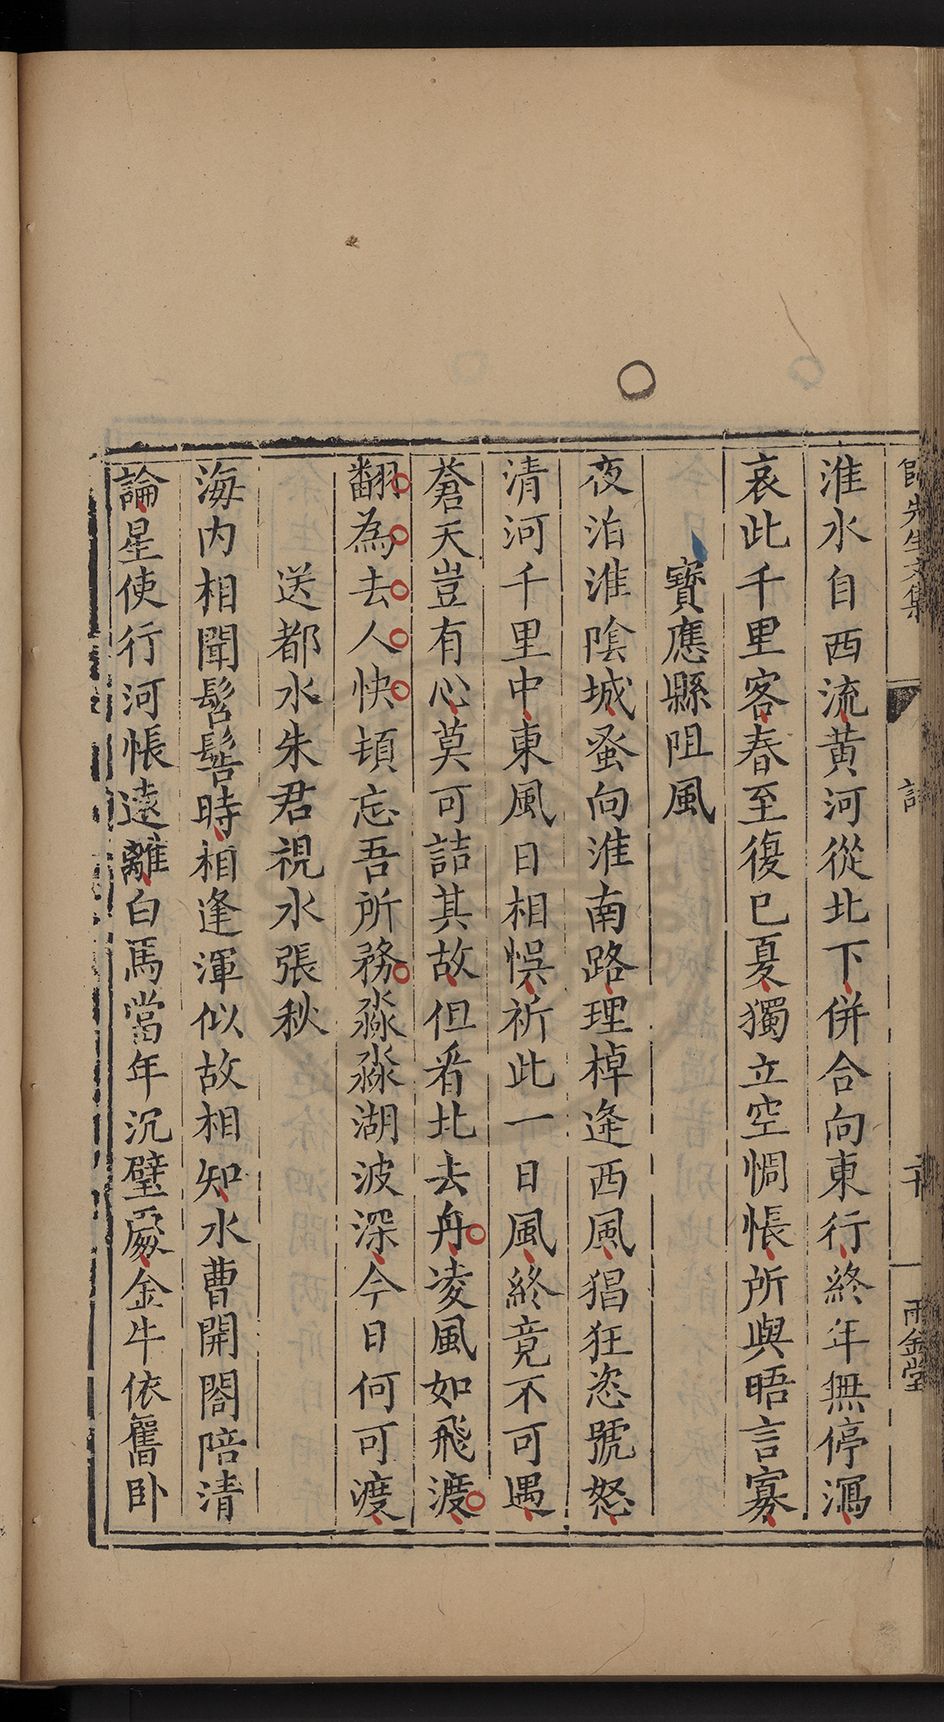 淮水自西流黄河從北下併合向東行終年無停瀉
哀此千里客春至復巳夏獨立空惆悵所與晤言寡
寶應縣阻風
夜泊淮陰城蚤向淮南路理棹逄西風猖狂恣號怒
清河千里中東風日相悞祈此一日風終竟不可遇
蒼天豈有心莫可詰其故但看北去舟凌風如飛渡
翻為去人快頓忘吾所務淼淼湖波深今日何可渡
送都水朱君視水張秋
海内相聞髫髻時相逢渾似故相知水曹開閤陪清
論星使行河悵遠離白馬當年沉璧處金牛依舊卧